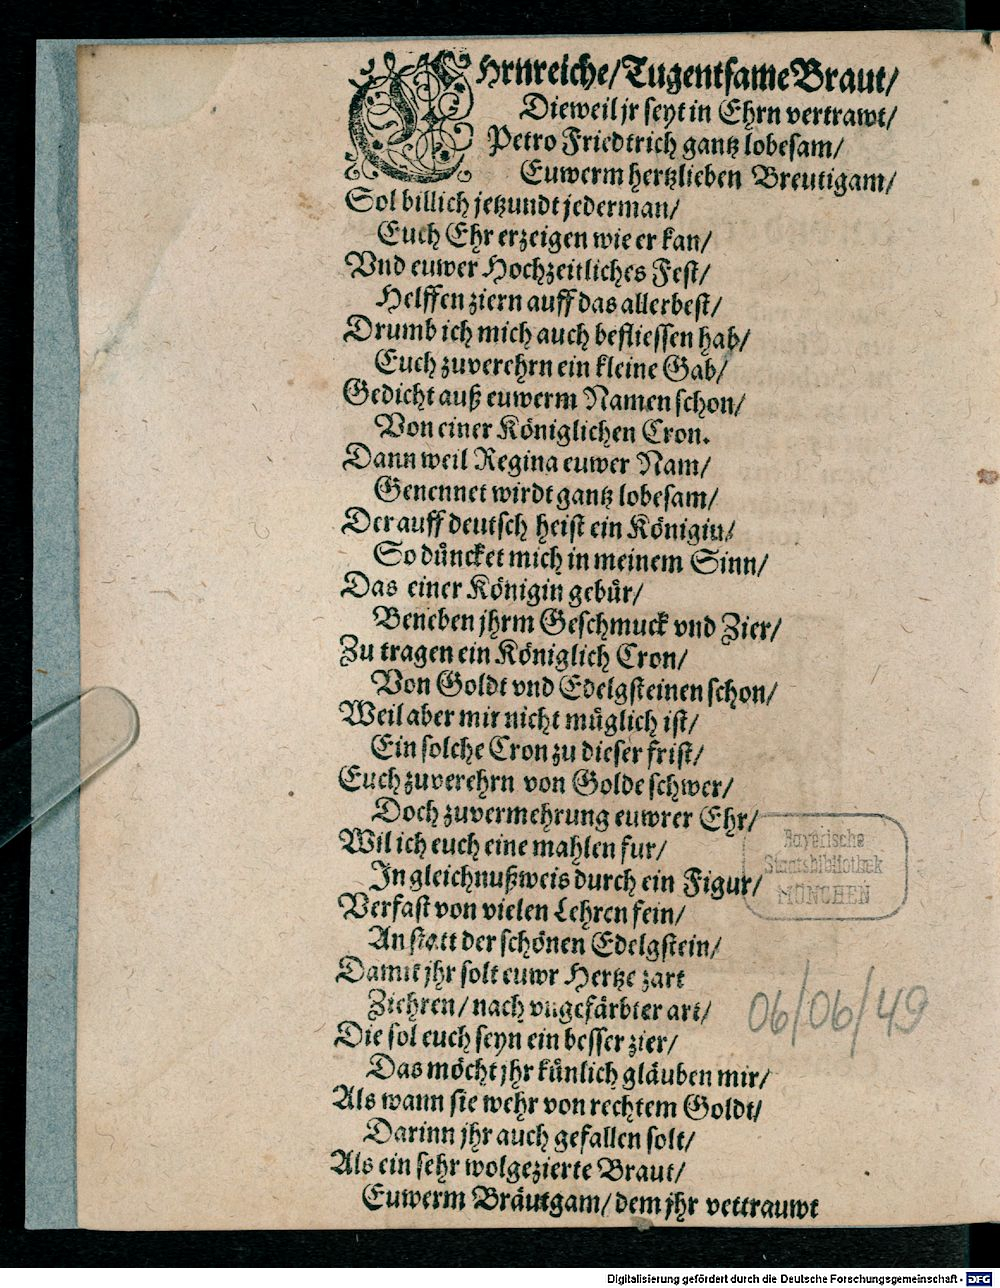 EHrnreiche/ Tugentsame Braut/
Dieweil jr seyt in Ehrn vertrawt/
Petro Friedtrich gantz lobesam/
Euwerm hertzlieben Breutigam/
Sol billich jetzundt jederman/
Euch Ehr erzeigen wie er kan/
Vnd euwer Hochzeitliches Fest/
Helffen ziern auff das allerbest/
Drumb ich mich auch befliessen hab/
Euch zuverehrn ein kleine Gab/
Gedicht auß euwerm Namen schon/
Von einer Königlichen Cron.
Dann weil Regina euwer Nam/
Genennet wirdt gantz lobesam/
Der auff deutsch heist ein Königin/
So düncket mich in meinem Sinn/
Das einer Königin gebür/
Beneben jhrm Geschmuck vnd Zier/
Zu tragen ein Königlich Cron/
Von Goldt vnd Edelgsteinen schon/
Weil aber mir nicht müglich ist/
Ein solche Cron zu dieser frist/
Euch zuverehrn von Golde schwer/
Doch zuvermehrung euwrer Ehr/
Wil ich euch eine mahlen fur/
In gleichnußweis durch ein Figur/
Verfast von vielen Lehren fein/
An statt der schönen Edelgstein/
Damit jhr solt euwr Hertze zart
Ziehren/ nach vngefärbter art/
Die sol euch seyn ein besser zier/
Das möcht jhr künlich gläuben mir/
Als wann sie wehr von rechtem Goldt/
Darinn jhr auch gefallen solt/
Als ein sehr wolgezierte Braut/
Euwerm Bräutgam/ dem jhr vettrauwt
Bayerische
Staatsbibliothek
MÜNCHEN
06/06/49
Digitalisierung gefördert durch die Deutsche Forschungsgemeinschaft - DFG